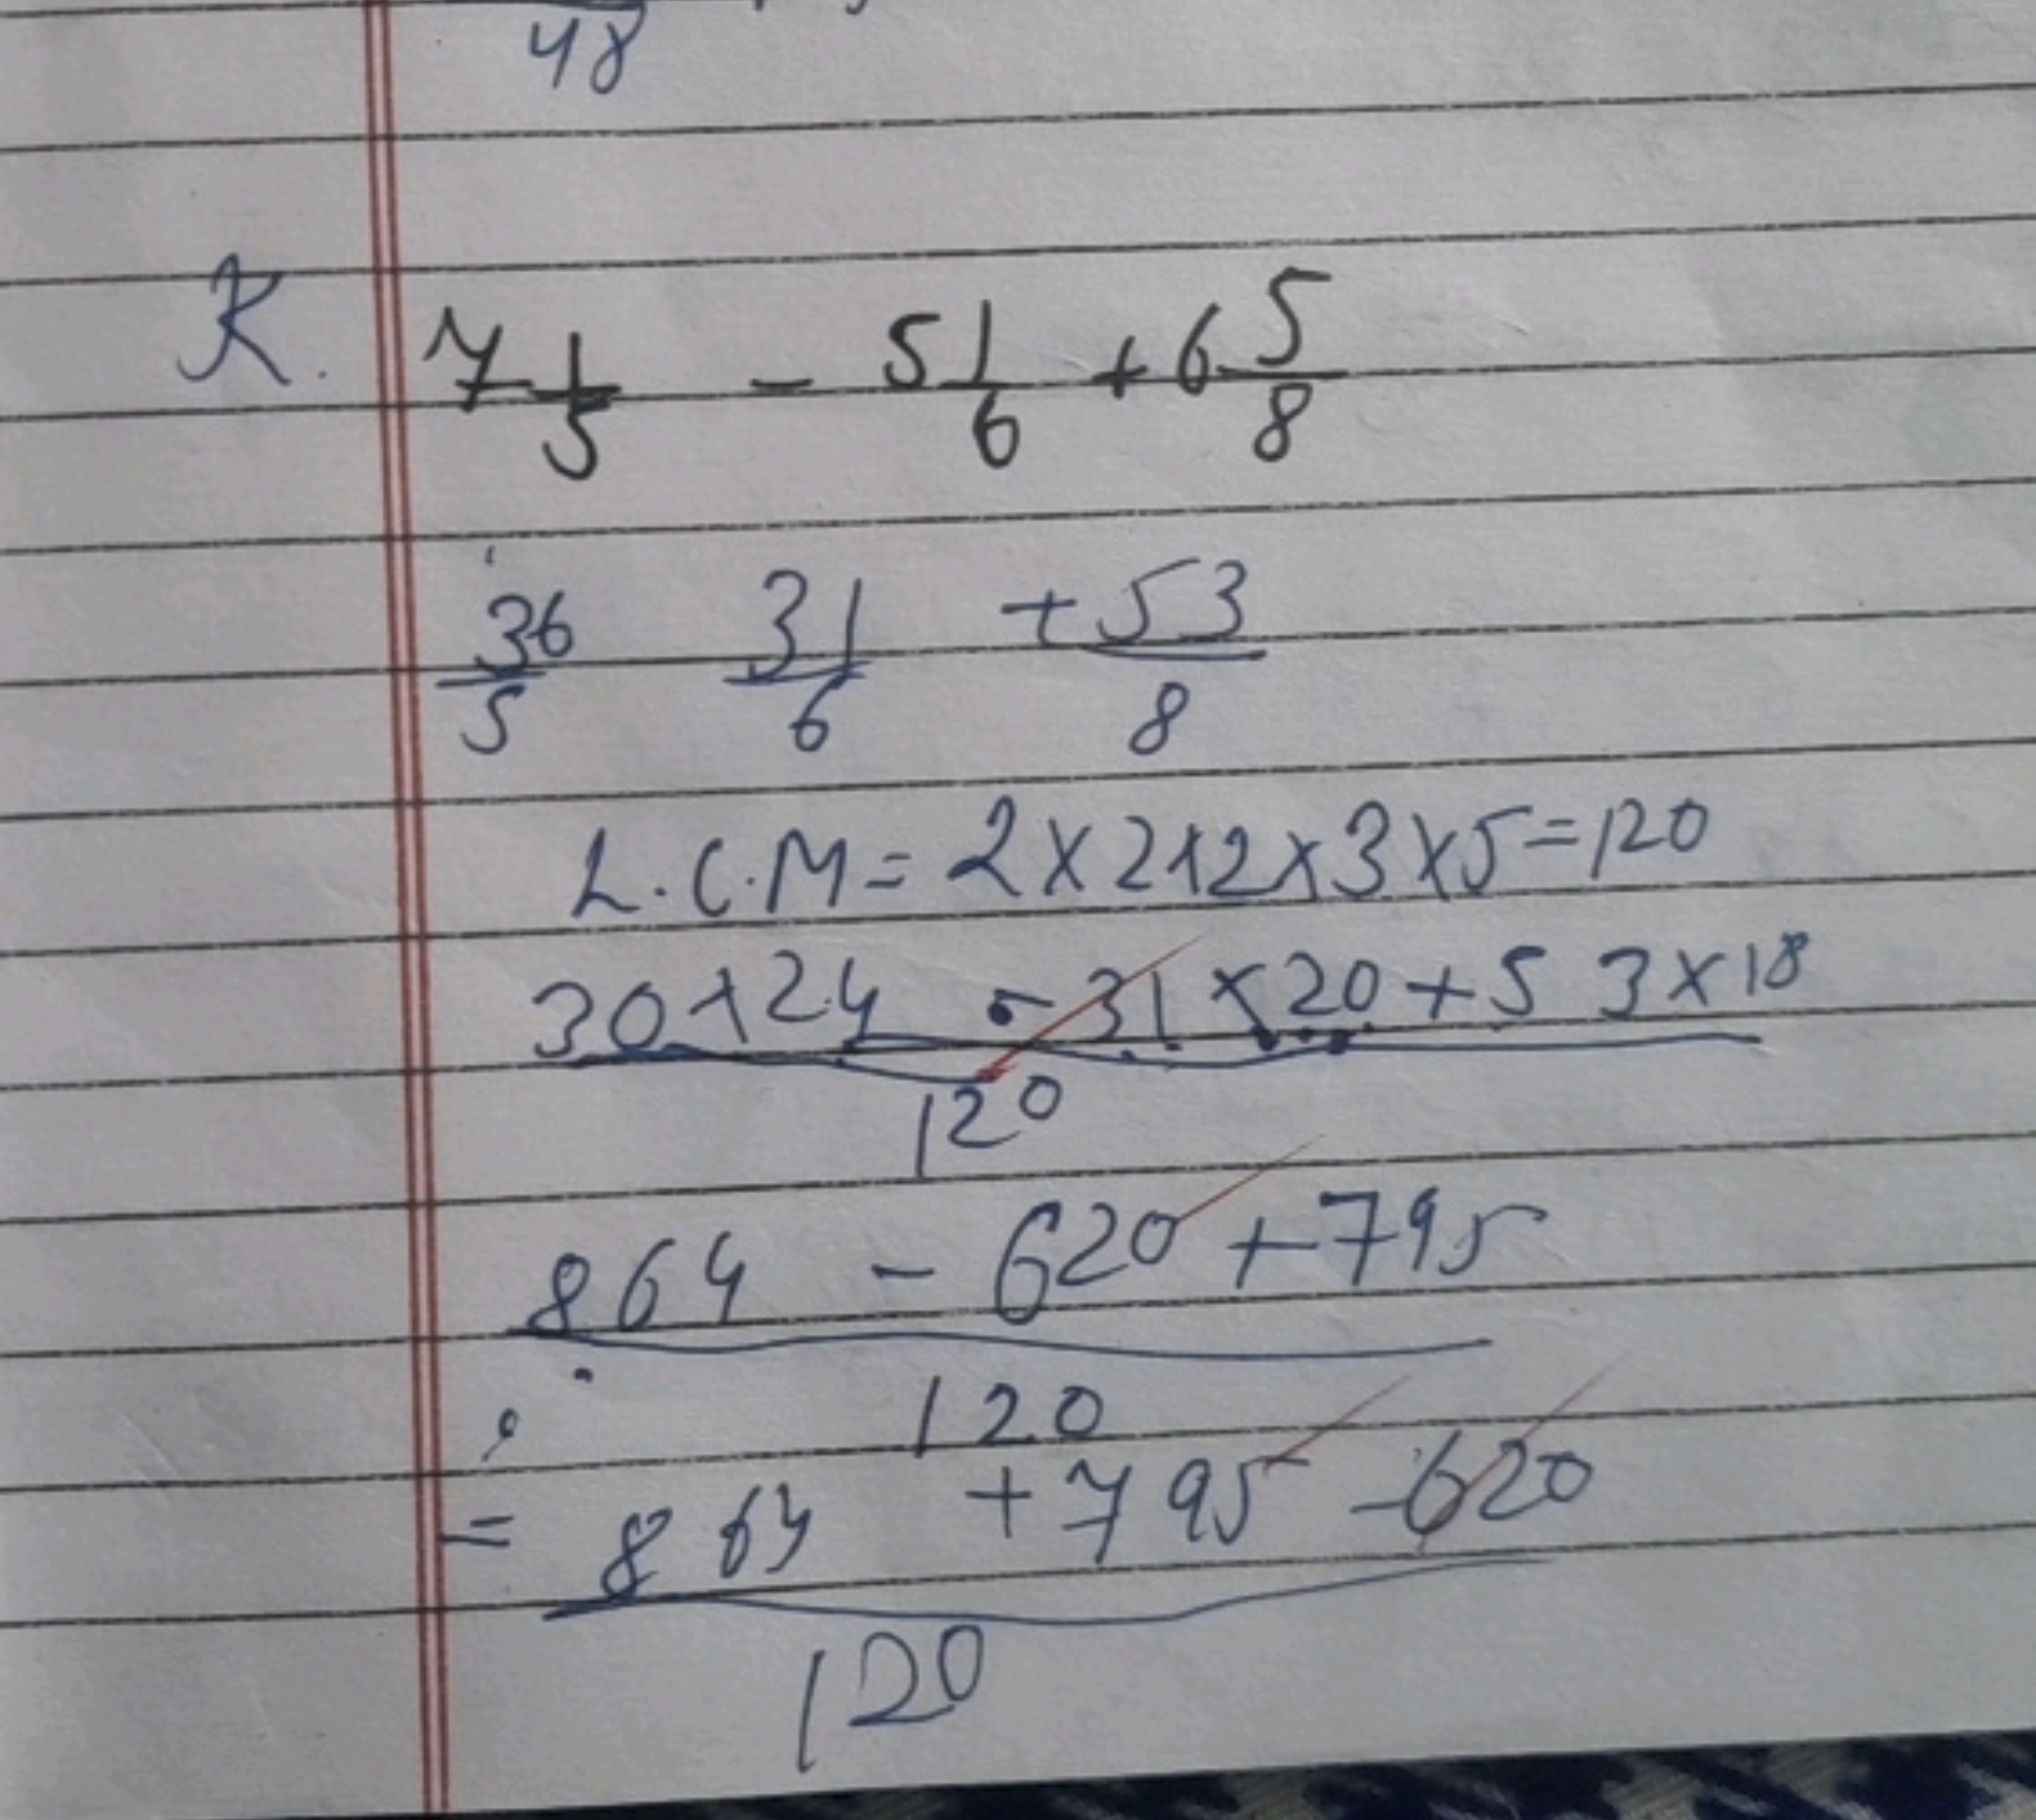 48
K. 7 1/5 - 5 1/6 + 6 5/8
36/5 31/6 + 53/8
L.C.M = 2 X 2 x 2 x 3 x 5 = 120
30 x 24 - 31 x 20 + 53 x 18
120
864 - 620 + 795
120
= 864 + 795 - 620
120